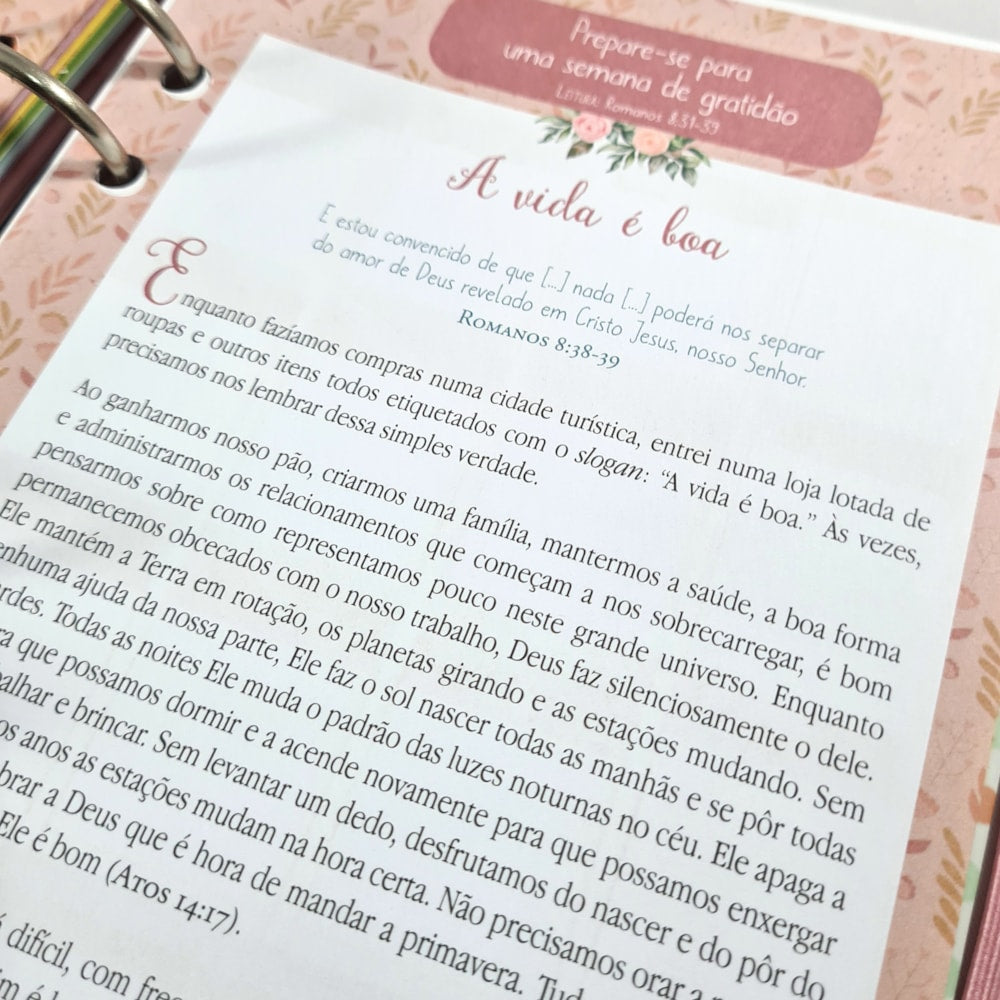 Prepare-se para
uma semana de gratidão
Leitura: Romanos 8:31-39
A vida é boa
E estou convencido de que [...] nada [...] poderá nos separar
do amor de Deus revelado em Cristo Jesus, nosso Senhor.
Romanos 8:38-39
Enquanto fazíamos compras numa cidade turística, entrei numa loja lotada de
roupas e outros itens todos etiquetados com o slogan: “A vida é boa.” Às vezes,
precisamos nos lembrar dessa simples verdade.
Ao ganharmos nosso pão, criarmos uma família, mantermos a saúde, a boa forma
e administrarmos os relacionamentos que começam a nos sobrecarregar, é bom
pensarmos sobre como representamos pouco neste grande universo. Enquanto
permanecemos obcecados com o nosso trabalho, Deus faz silenciosamente o dele.
Ele mantém a Terra em rotação, os planetas girando e as estações mudando. Sem
enhuma ajuda da nossa parte, Ele faz o sol nascer todas as manhãs e se pôr todas
rdes. Todas as noites Ele muda o padrão das luzes noturnas no céu. Ele apaga a
ra que possamos dormir e a acende novamente para que possamos enxergar
alhar e brincar. Sem levantar um dedo, desfrutamos do nascer e do pôr do
os anos as estações mudam na hora certa. Não precisamos orar a
brar a Deus que é hora de mandar a primavera. Tud
Ele é bom (Atos 14:17).
difícil, com fre